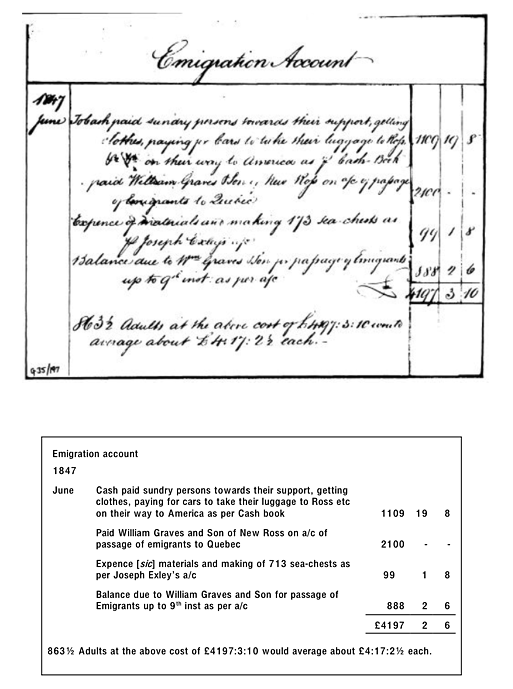 Emigration Account
1847
June To Cash paid sundry persons towards their support, getting
clothes, paying for Cars to take their luggage to Ross 1109 19 8
on their way to America as pr Cash-Book
paid William Graves & Son of New Ross on a/c of passage 2100 - -
of Emigrants to Quebec
Expence of materials and making 173 sea-chests as 99 1 8
pr Joseph Exley's a/c
Balance due to Wm Graves & Son for passage of Emigrants 888 2 6
up to 9th inst. as per a/c
4197 3 10
863½ Adults at the above cost of £4197:3:10 would
average about £4:17:2½ each.-
Q35/197
Emigration account
1847
June Cash paid sundry persons towards their support, getting
clothes, paying for cars to take their luggage to Ross etc
on their way to America as per Cash book 1109 19 8
Paid William Graves and Son of New Ross on a/c of
passage of emigrants to Quebec 2100 - -
Expence [sic] materials and making of 713 sea-chests as
per Joseph Exley's a/c 99 1 8
Balance due to William Graves and Son for passage of
Emigrants up to 9th inst as per a/c 888 2 6
£4197 2 6
863½ Adults at the above cost of £4197:3:10 would average about £4:17:2½ each.